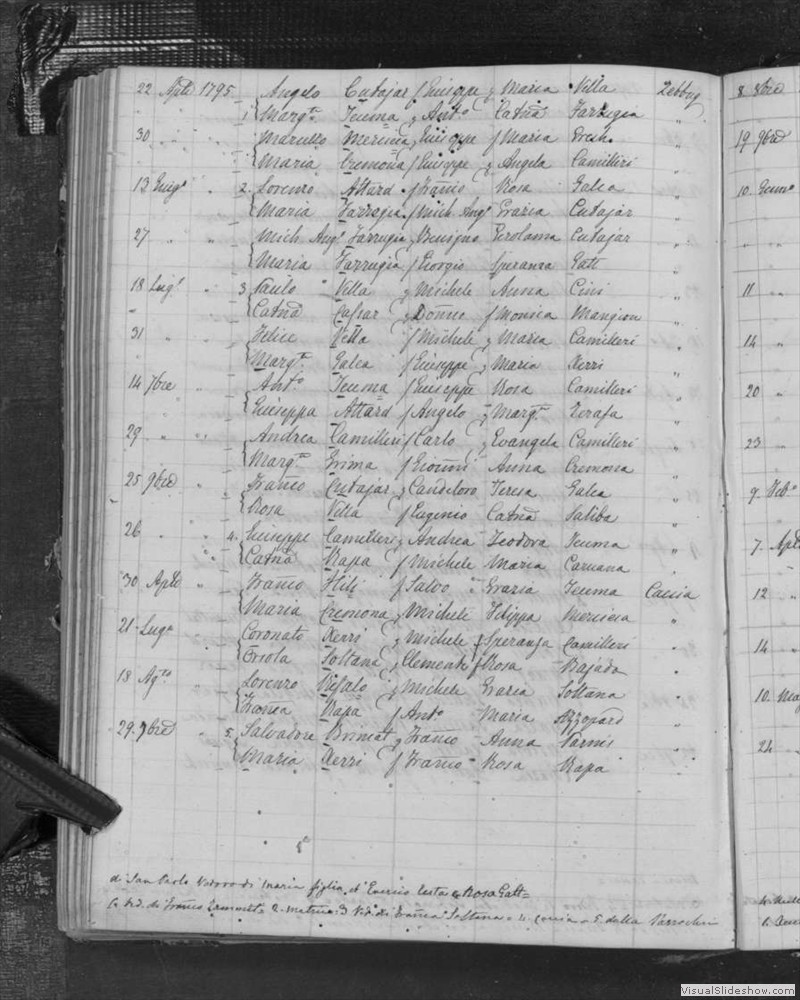 22 Aple 1795 Angelo Cutajar f Giuseppe y Maria Villa Zebbug
1 Margta Teuma y Anto Catna Farrugia "
30 " " Marullo Mercieca y Giuseppe f Maria "
Maria Cremona f Giuseppe y Angela Camilleri "
13 Giugo " 2. Lorenzo Attard f Franco Rosa Galea "
Maria Farrugia f Mich Ango Grazia Cutajar "
27 " " Mich Ango Farrugia y Benigno Gerolama Cutajar "
Maria Farrugia f Giorgio Speranza Gatt "
18 Lugo " 3 Paulo Villa y Michele Anna Cini "
" Catna Casar y f Monica Mangion "
31 " Felice Vella f Michele y Maria Camilleri "
Margta Galea f Giuseppe y Maria Xerri "
14 7bre " Anto Teuma f Giuseppe Rosa Camilleri "
Giuseppa Attard f Angelo y Margta Zerafa "
29 " " Andrea Camilleri f Carlo y Evangela Camilleri "
Margta Grima f Gioanni Anna Cremona "
25 9bre " Franco Cutajar y Candiloro Teresa Galea "
Rosa Villa f Eugenio Catna Saliba "
26 " " 4. Giuseppe Camilleri y Andrea Teodora Teuma "
Catna Rapa f Michele Maria Caruana "
30 Aple " Franco Hili f Salvo Grazia Teuma Caccia
Maria Cremona y Michele Filippa Mercieca "
21 Lugo Coronato Xerri y Michele f Speranza Camilleri "
Soltana y Clemente f Rosa Bajada "
18 Agto " Lorenzo y Michele Grazia Soltana "
Franca Rapa f Anto Maria Azzopard "
29. 9bre " 5. Salvadore Brincat y Franco Anna Farnis "
Maria Xerri f Franco Rosa Rapa "
di San Paolo Vedovo di Maria figlia et Enrico Testa e Rosa Gatt=
Ved. di Franco Zammit 2. 3 Ved. di Franca Soltana = 4. = 5. della Parrochia
8 8bre
19 9bre
10 Genno
11 "
14 "
20 "
23 "
9 Febo
7 Aple
12 "
14 "
10 Mag
24 "
VisualSlideshow.com